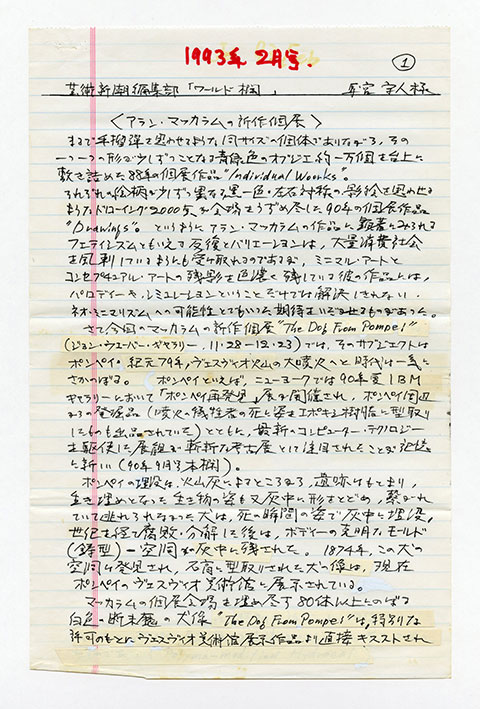 1993年 2月号.
①
芸術新潮編集部「ワールド欄」 宇人様
〈アラン・マッカラムの新作個展〉
まるで手榴弾を思わせるような同サイズの個体でありながら、その
一つ一つの形が少しずつことなる青緑色のオブジェ約一万個を台上に
敷き詰めた88年の個展作品"Individual Works"。
それぞれの絵柄が少しずつ異なる黒一色・左右対称の影絵を思わせる
ようなドローイング2000点が会場をうずめ尽した90年の個展作品
"Drawings"。というようにアラン・マッカラムの作品に顕著にみられる
フェティシズムともいえる反復とバリエーションは、大量消費社会
を風刺しているようにも受け取れるのであるが、ミニマル・アートと
コンセプチュアル・アートの残影を色濃く残している彼の作品には、
パロディーや、シミュレーションということだけでは解決しきれない、
ネオ・ミニマリズムへの可能性とでもいった期待をいだかせるものがあった。
さて今回のマッカラムの新作個展"The Dog From Pompei"
(ジョン・ウェーバー・ギャラリー. 11・28-12・23)では、そのサブジェクトは
ポンペイ。紀元79年、ヴェスヴィオ火山の大噴火へと時代は一気に
さかのぼる。 ポンペイといえば、ニューヨークでは90年夏IBM
ギャラリーにおいて「ポンペイ再発見」展が開催され、ポンペイ周辺
からの発掘品(噴火の犠牲者の死に姿をエポキシ樹脂に型取り
したものも出品されていた)とともに、最新のコンピューター・テクノロジー
を駆使した展観が斬新な考古展として注目されたことが記憶
に新しい(90年9月号本欄)。
ポンペイの埋没は、火山灰によるところなるが、遺跡はもとより、
生き埋めとなった生き物の姿も又灰中に形をとどめ、繋がれ
ていて逃れられなかった犬は、死の瞬間の姿で灰中に埋没。
世紀を経て腐敗・分解した後は、ボディーの克明なモールド
(鋳型)-空間が灰中に残された。1874年、この犬の
空間が発見され、石膏に型取りされた犬の像は、現在
ポンペイのヴェスヴィオ美術館に展示されている。
マッカラムの個展会場を埋め尽す80体以上にのぼる
白色の断末魔の犬像"The Dog From Pompei"は、特別な
許可のもとにヴェスヴィオ美術館展示作品より直接キャストされ